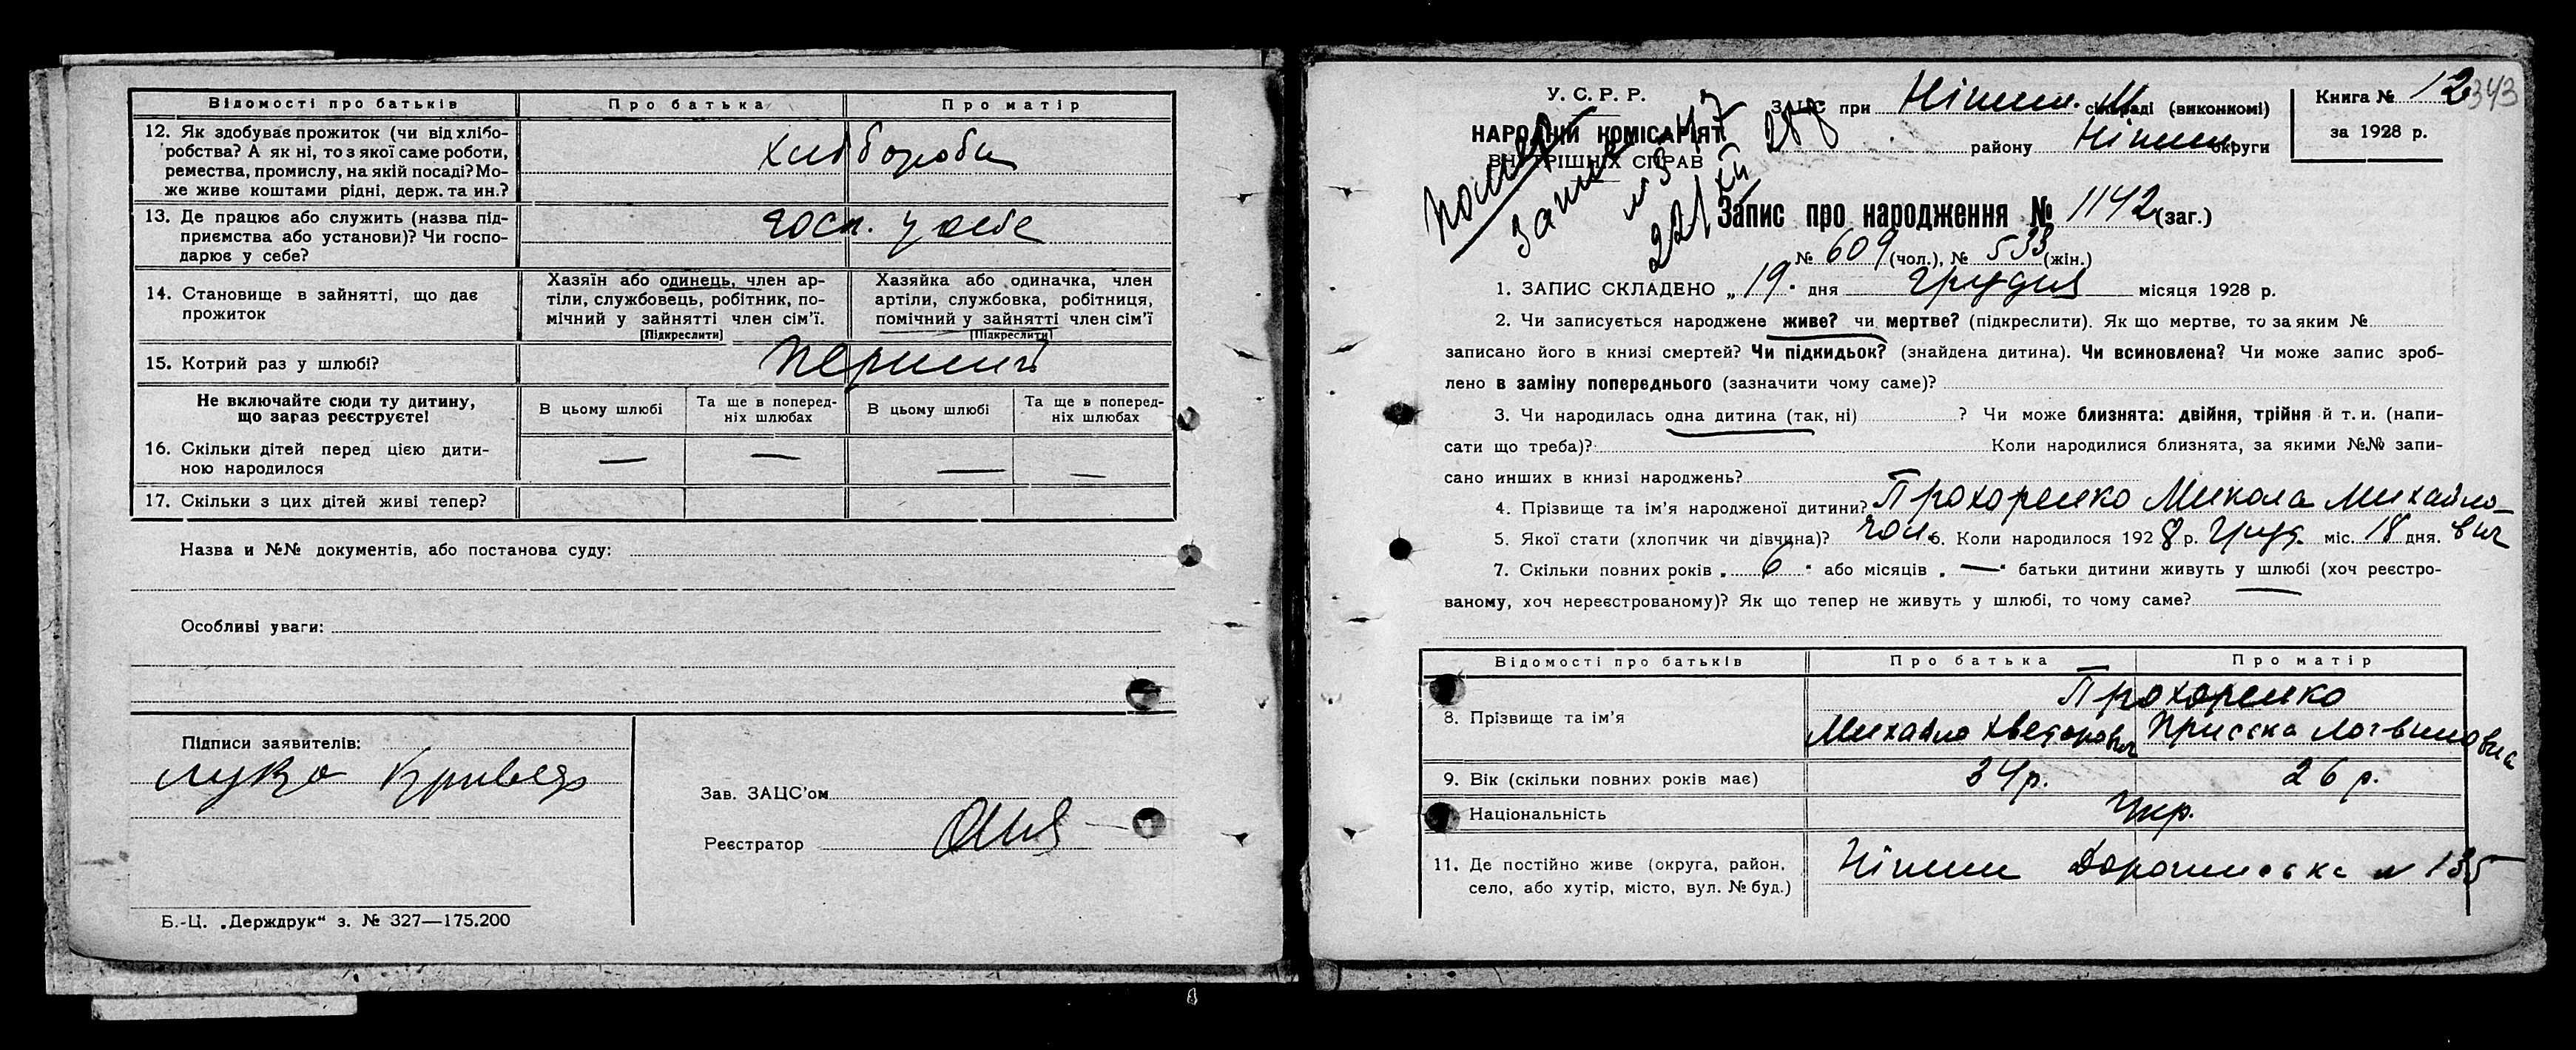 Відомості про батьків
Про батька
Про матір
12. Як здобуває прожиток (чи від хлібо-
робства? А як ні, то з якої саме роботи,
ремества, промислу, на якій посаді? Мо-
же живе коштами рідні, держ. та ин.?
хлібороби
13. Де працює або служить (назва під-
приємства або установи)? Чи госпо-
дарює у себе?
госп. у себе
14. Становище в зайнятті, що дає
прожиток
Хазяїн або одинець, член ар-
тіли, службовець, робітник, по-
мічний у зайнятті член сім'ї.
[Підкреслити]
Хазяйка або одиначка, член
артіли, службовка, робітниця,
помічний у зайнятті член сім'ї
[Підкреслити]
15. Котрий раз у шлюбі?
перший
Не включайте сюди ту дитину,
що зараз реєструєте!
В цьому шлюбі
Та ще в поперед-
ніх шлюбах
В цьому шлюбі
Та ще в поперед-
ніх шлюбах
16. Скільки дітей перед цією дити-
ною народилося
— — — —
17. Скільки з цих дітей живі тепер?
Назва и №№ документів, або постанова суду:
Особливі уваги:
Підписи заявителів:
Лука Кривец
Зав. ЗАЦС'ом
Реєстратор
Б.-Ц. „Держдрук“ з. № 327—175.200
У. С. Р. Р.
НАРОДНІЙ КОМІСАРІЯТ
ВНУТРІШНІХ СПРАВ
ЗАЦС при Ніжин. М сільраді (виконкомі)
району Ніжин округи
Книга № 12
за 1928 р.
343
288
Запис про народження № 1142 (заг.)
№ 609 (чол.), № 533 (жін.)
1. ЗАПИС СКЛАДЕНО „19“ дня Грудня місяця 1928 р.
2. Чи записується народжене живе? чи мертве? (підкреслити). Як що мертве, то за яким №
записано його в книзі смертей? Чи підкидьок? (знайдена дитина). Чи всиновлена? Чи може запис зроб-
лено в заміну попереднього (зазначити чому саме)?
3. Чи народилась одна дитина (так, ні) ? Чи може близнята: двійня, трійня й т. и. (напи-
сати що треба)? Коли народилися близнята, за якими №№ запи-
сано инших в книзі народжень?
4. Прізвище та ім'я народженої дитини? Прохоренко Микола Михайло-
вич
5. Якої стати (хлопчик чи дівчина)? чол. 6. Коли народилося 1928 р. Груд. міс. 18 дня.
7. Скільки повних років „6“ або місяців „—“ батьки дитини живуть у шлюбі (хоч реєстро-
ваному, хоч нереєстрованому)? Як що тепер не живуть у шлюбі, то чому саме?
Відомості про батьків
Про батька
Про матір
8. Прізвище та ім'я
Прохоренко
Михайло Хведорович
Приська Логвиновна
9. Вік (скільки повних років має)
34 р.
26 р.
Національність
Укр.
11. Де постійно живе (округа, район,
село, або хутір, місто, вул. № буд.)
Ніжин Дорошивська № 135